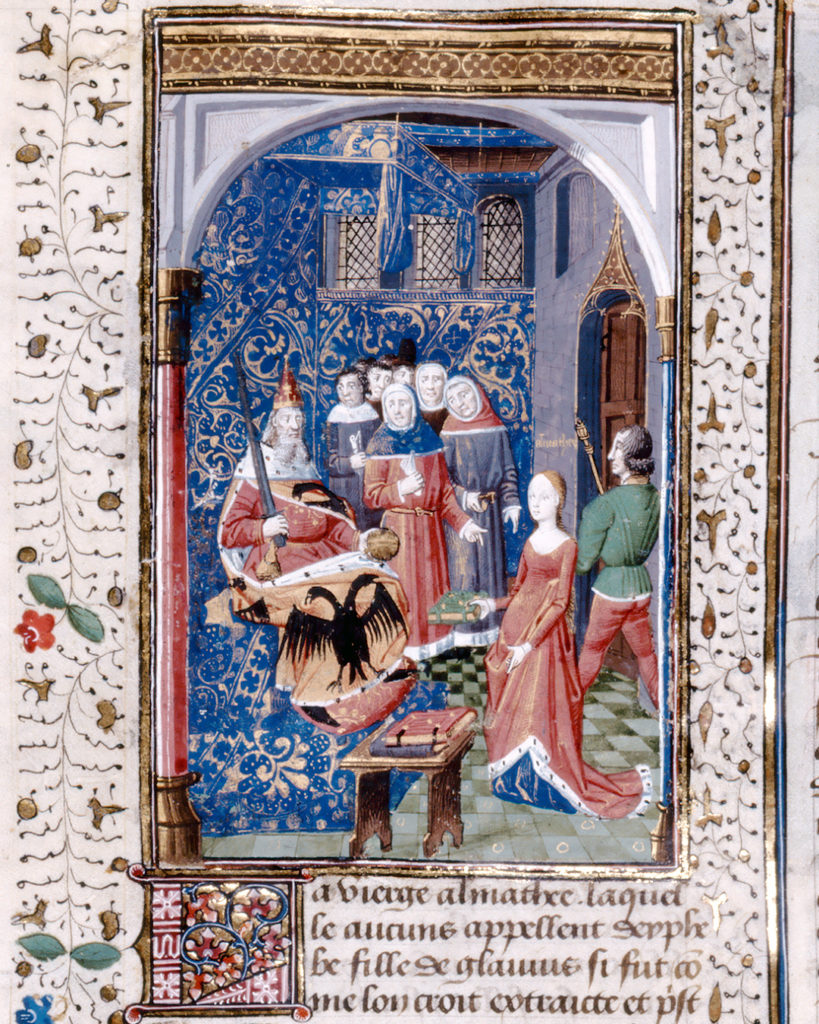 a vierge almathee. laquel
le aucuns appellent deyphe
be fille de glaucus si fut cō
me lon croit extraicte et p̄st